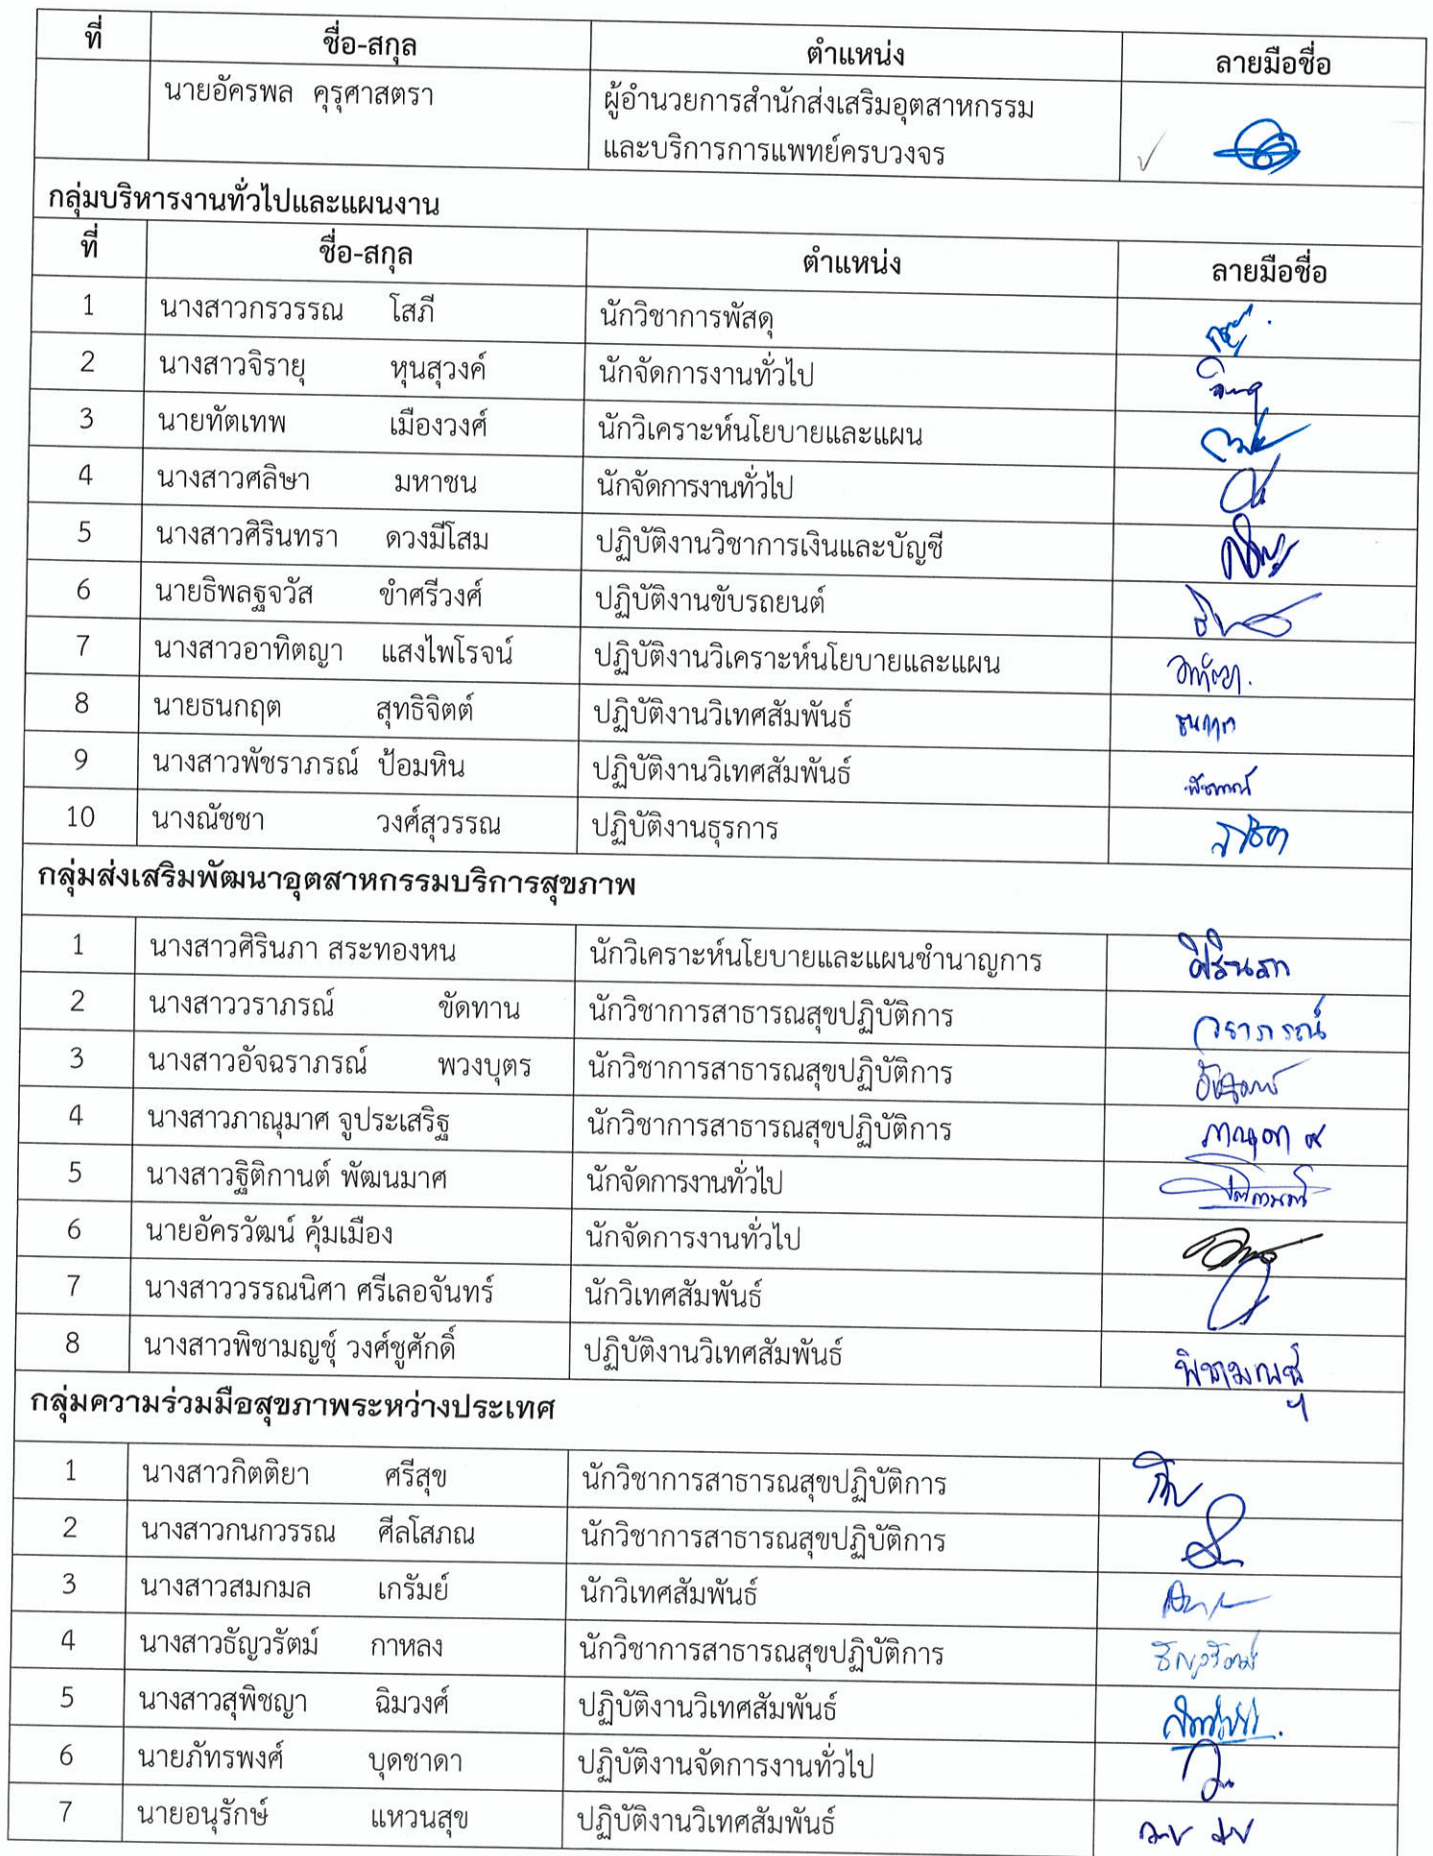 ที่ ชื่อ-สกุล ตำแหน่ง ลายมือชื่อ
นายอัครพล คุรุศาสตรา ผู้อำนวยการสำนักส่งเสริมอุตสาหกรรม
และบริการการแพทย์ครบวงจร
กลุ่มบริหารงานทั่วไปและแผนงาน
ที่ ชื่อ-สกุล ตำแหน่ง ลายมือชื่อ
1 นางสาวกรวรรณ โสภี นักวิชาการพัสดุ
2 นางสาวจิรายุ หุนสุวงค์ นักจัดการงานทั่วไป
3 นายทัตเทพ เมืองวงศ์ นักวิเคราะห์นโยบายและแผน
4 นางสาวศลิษา มหาชน นักจัดการงานทั่วไป
5 นางสาวศิรินทรา ดวงมีโสม ปฏิบัติงานวิชาการเงินและบัญชี
6 นายธิพลฐจวัส ขำศรีวงศ์ ปฏิบัติงานขับรถยนต์
7 นางสาวอาทิตญา แสงไพโรจน์ ปฏิบัติงานวิเคราะห์นโยบายและแผน
8 นายธนกฤต สุทธิจิตต์ ปฏิบัติงานวิเทศสัมพันธ์ ธนกฤต
9 นางสาวพัชราภรณ์ ป้อมหิน ปฏิบัติงานวิเทศสัมพันธ์ พัชราภรณ์
10 นางณัชชา วงศ์สุวรรณ ปฏิบัติงานธุรการ
กลุ่มส่งเสริมพัฒนาอุตสาหกรรมบริการสุขภาพ
1 นางสาวศิรินภา สระทองหน นักวิเคราะห์นโยบายและแผนชำนาญการ ศิรินภา
2 นางสาววราภรณ์ ขัดทาน นักวิชาการสาธารณสุขปฏิบัติการ วราภรณ์
3 นางสาวอัจฉราภรณ์ พวงบุตร นักวิชาการสาธารณสุขปฏิบัติการ
4 นางสาวภาณุมาศ จูประเสริฐ นักวิชาการสาธารณสุขปฏิบัติการ
5 นางสาวฐิติกานต์ พัฒนมาศ นักจัดการงานทั่วไป
6 นายอัครวัฒน์ คุ้มเมือง นักจัดการงานทั่วไป
7 นางสาววรรณนิศา ศรีเลอจันทร์ นักวิเทศสัมพันธ์
8 นางสาวพิชามญชุ์ วงศ์ชูศักดิ์ ปฏิบัติงานวิเทศสัมพันธ์ พิชามญชุ์
กลุ่มความร่วมมือสุขภาพระหว่างประเทศ
1 นางสาวกิตติยา ศรีสุข นักวิชาการสาธารณสุขปฏิบัติการ
2 นางสาวกนกวรรณ ศีลโสภณ นักวิชาการสาธารณสุขปฏิบัติการ
3 นางสาวสมกมล เกรัมย์ นักวิเทศสัมพันธ์
4 นางสาวธัญวรัตม์ กาหลง นักวิชาการสาธารณสุขปฏิบัติการ ธัญวรัตม์
5 นางสาวสุพิชญา ฉิมวงศ์ ปฏิบัติงานวิเทศสัมพันธ์
6 นายภัทรพงศ์ บุดชาดา ปฏิบัติงานจัดการงานทั่วไป
7 นายอนุรักษ์ แหวนสุข ปฏิบัติงานวิเทศสัมพันธ์